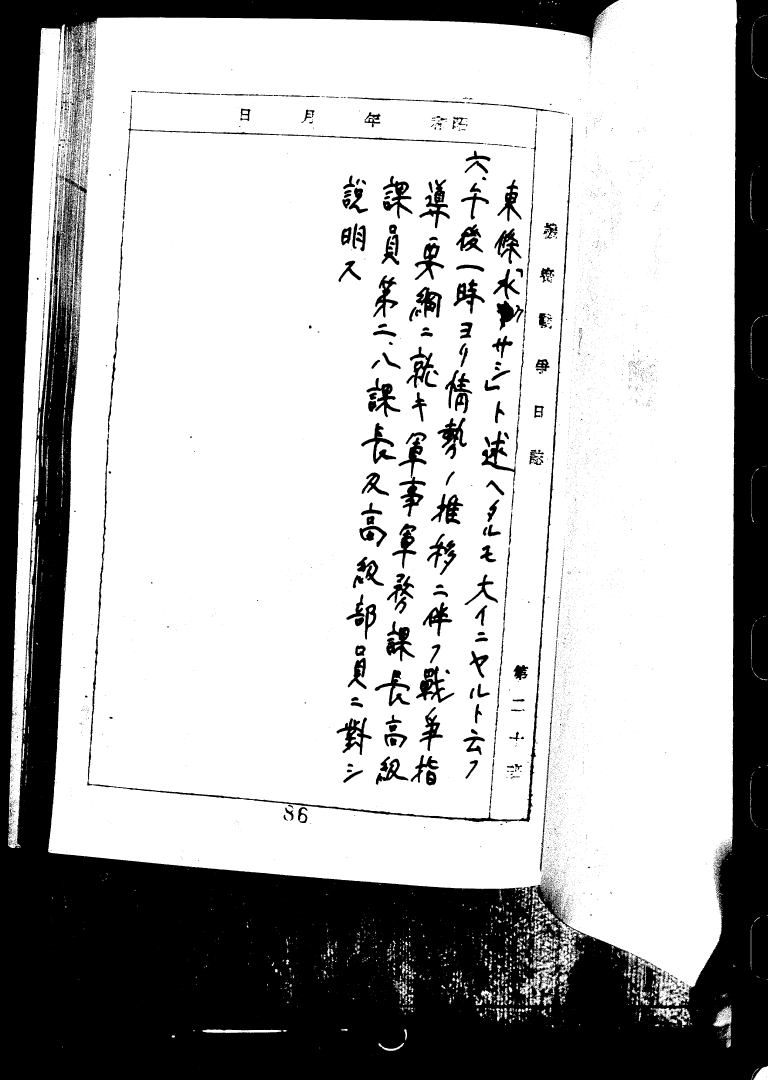 機密戰爭日誌
第二十班
昭和 年 月 日
東條「水サシ」ト述ヘタルモ大イニヤルト云フ
六、午後一時ヨリ情勢ノ推移ニ伴フ戰爭指
導要綱ニ就キ軍事軍務課長高級
課員第二、八課長及高級部員ニ對シ
説明ス
86